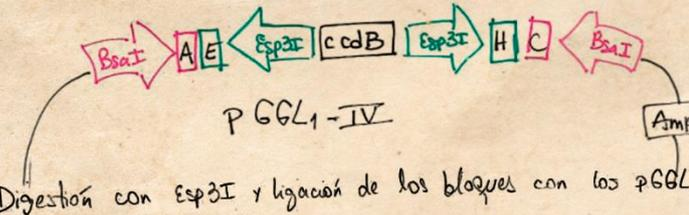 BsaI A E Esp3I ccdB Esp3I H C BsaI
pGGL1-IV
Amp
Digestión con Esp3I y ligación de los bloques con los pGGL